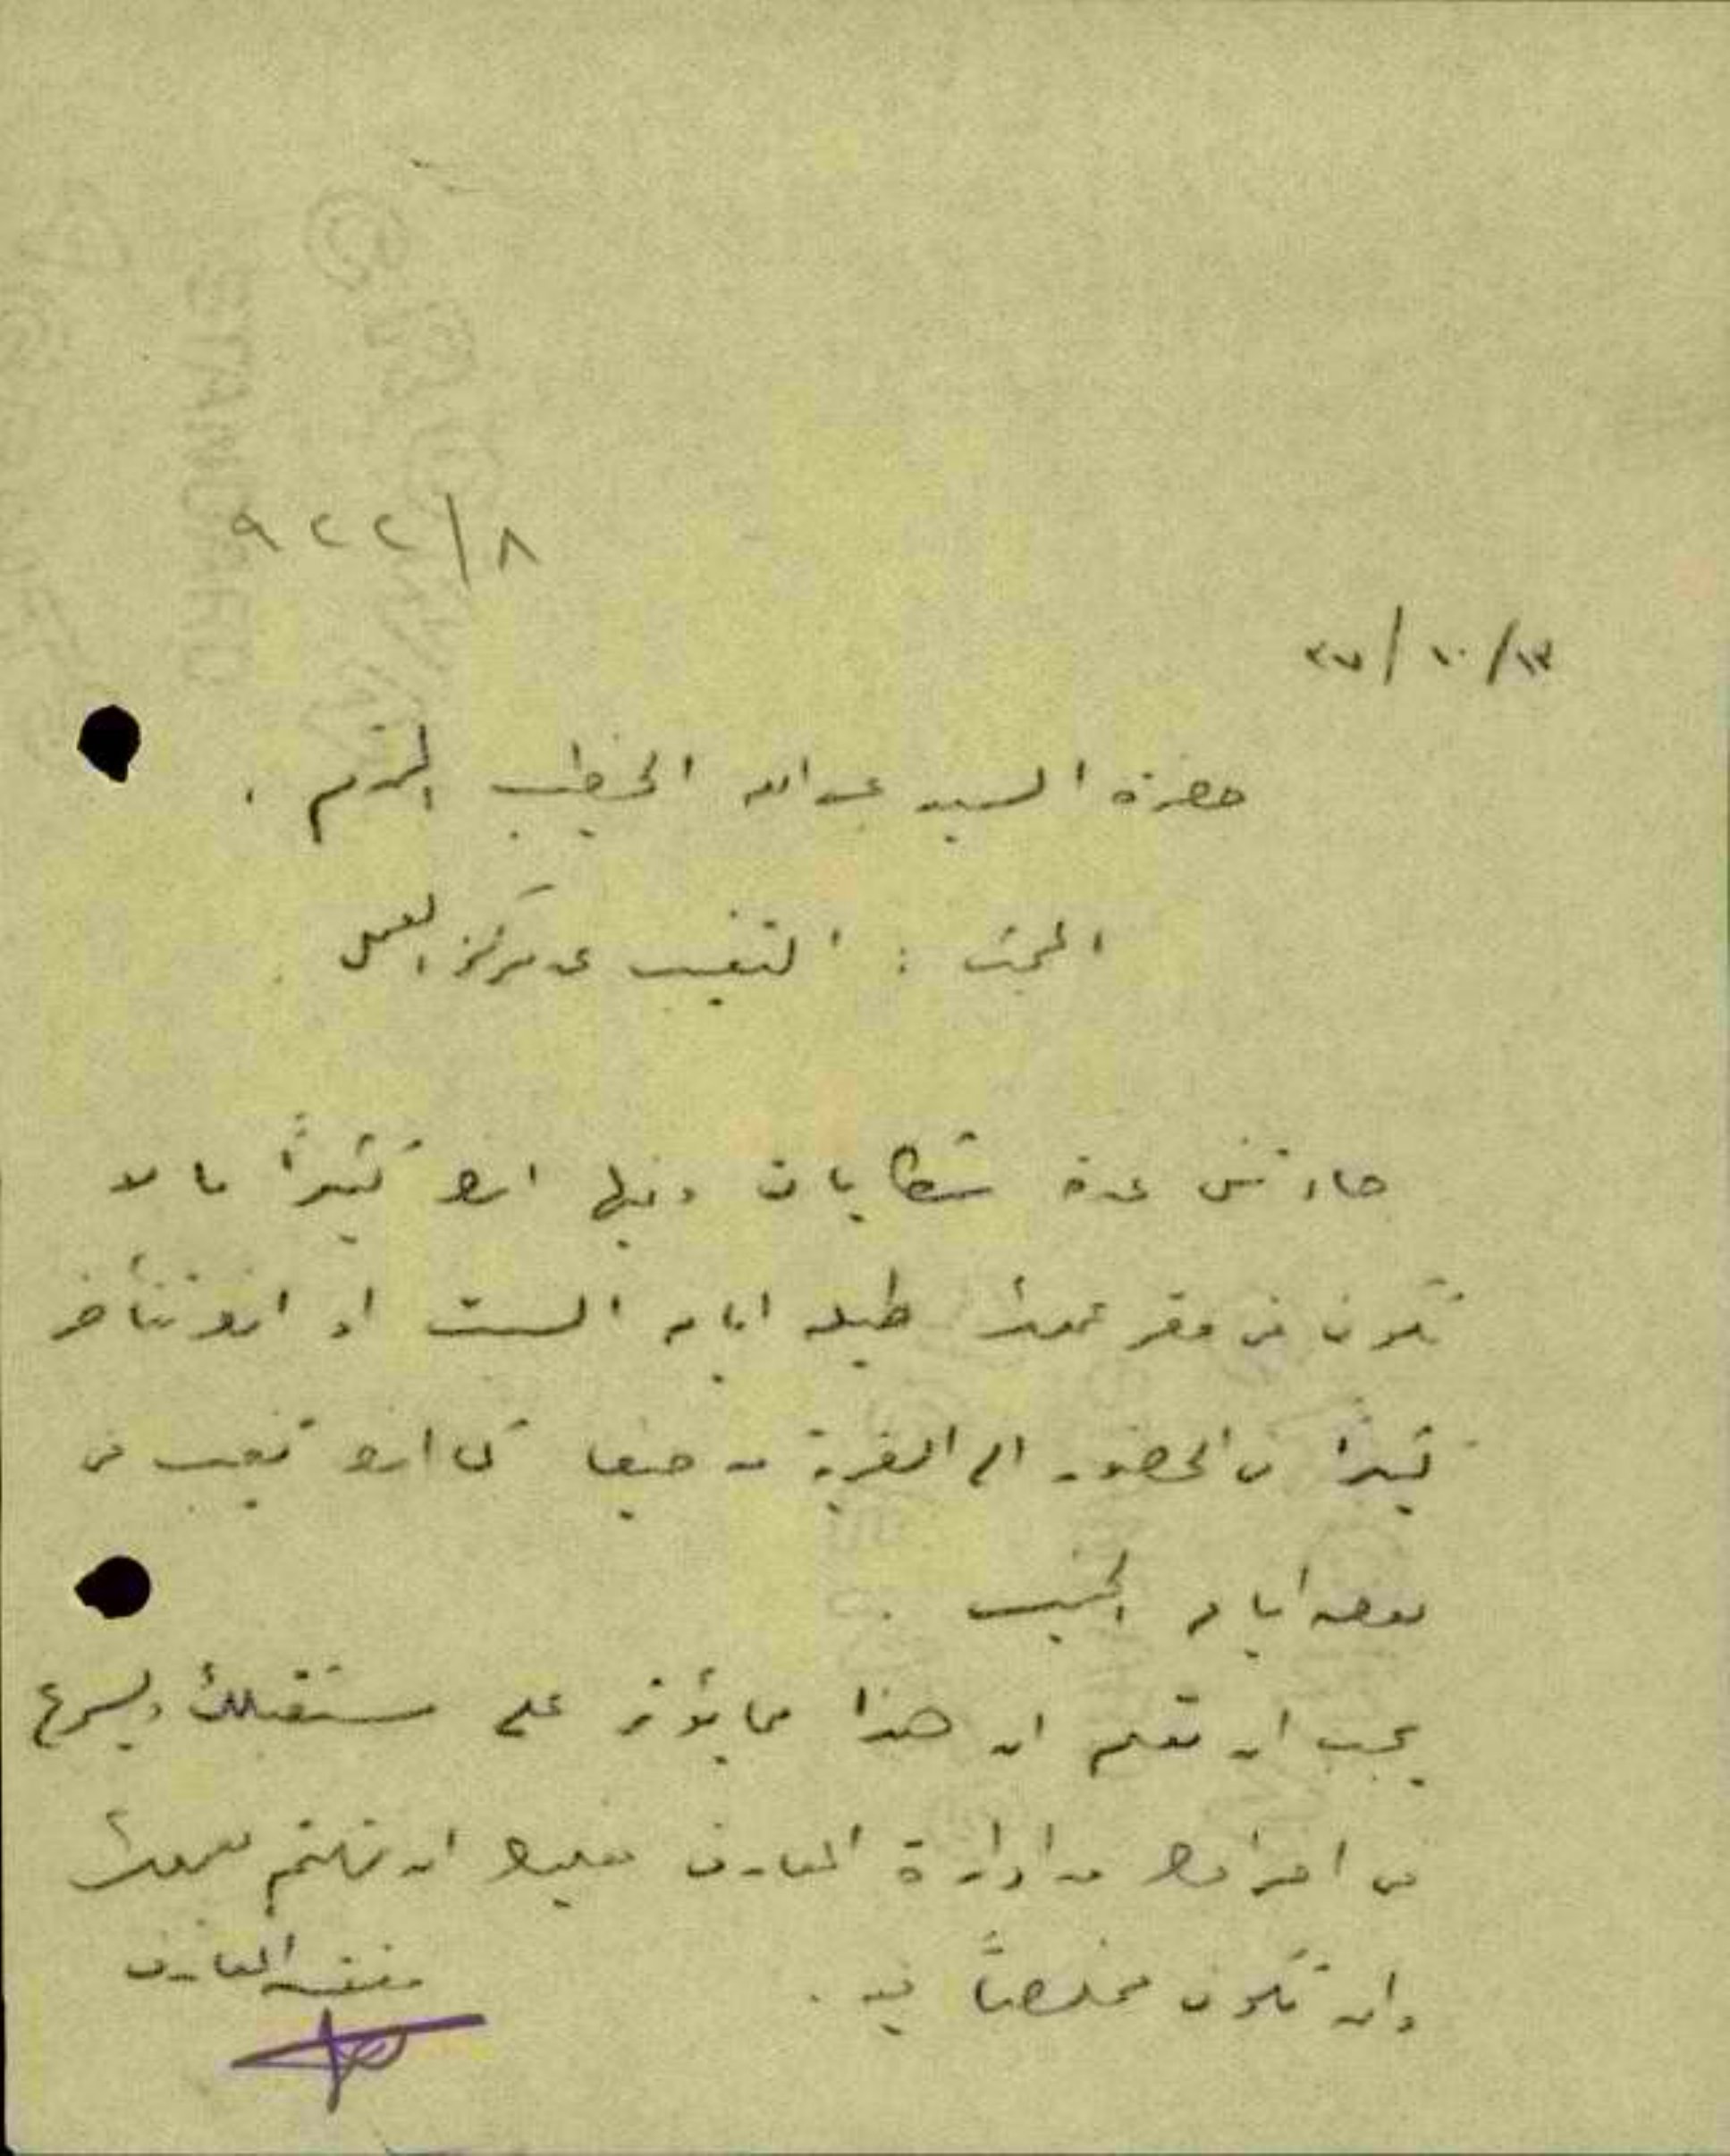 ٩٢٢/٨
٣٧/١٠/١٣
حضرة السيد عبدالله الخطيب المحترم .
المبحث : التغيب عن مركز العمل
جاءتني عدة شكايات وفيها انك كثيراً ما لا
تكون في مقر عملك طيلة ايام السبت او انك تتأخر
كثيراً في الحضور الى القرية من حيفا كما انك تغيب في
بعض ايام الخميس .
يجب ان تعلم ان هذا مما يؤثر على مستقبلك ويسرع
في اخراجك من ادارة المعارف فعليك ان تهتم لعملك
وان تكون مخلصاً فيه .
مفتش المعارف